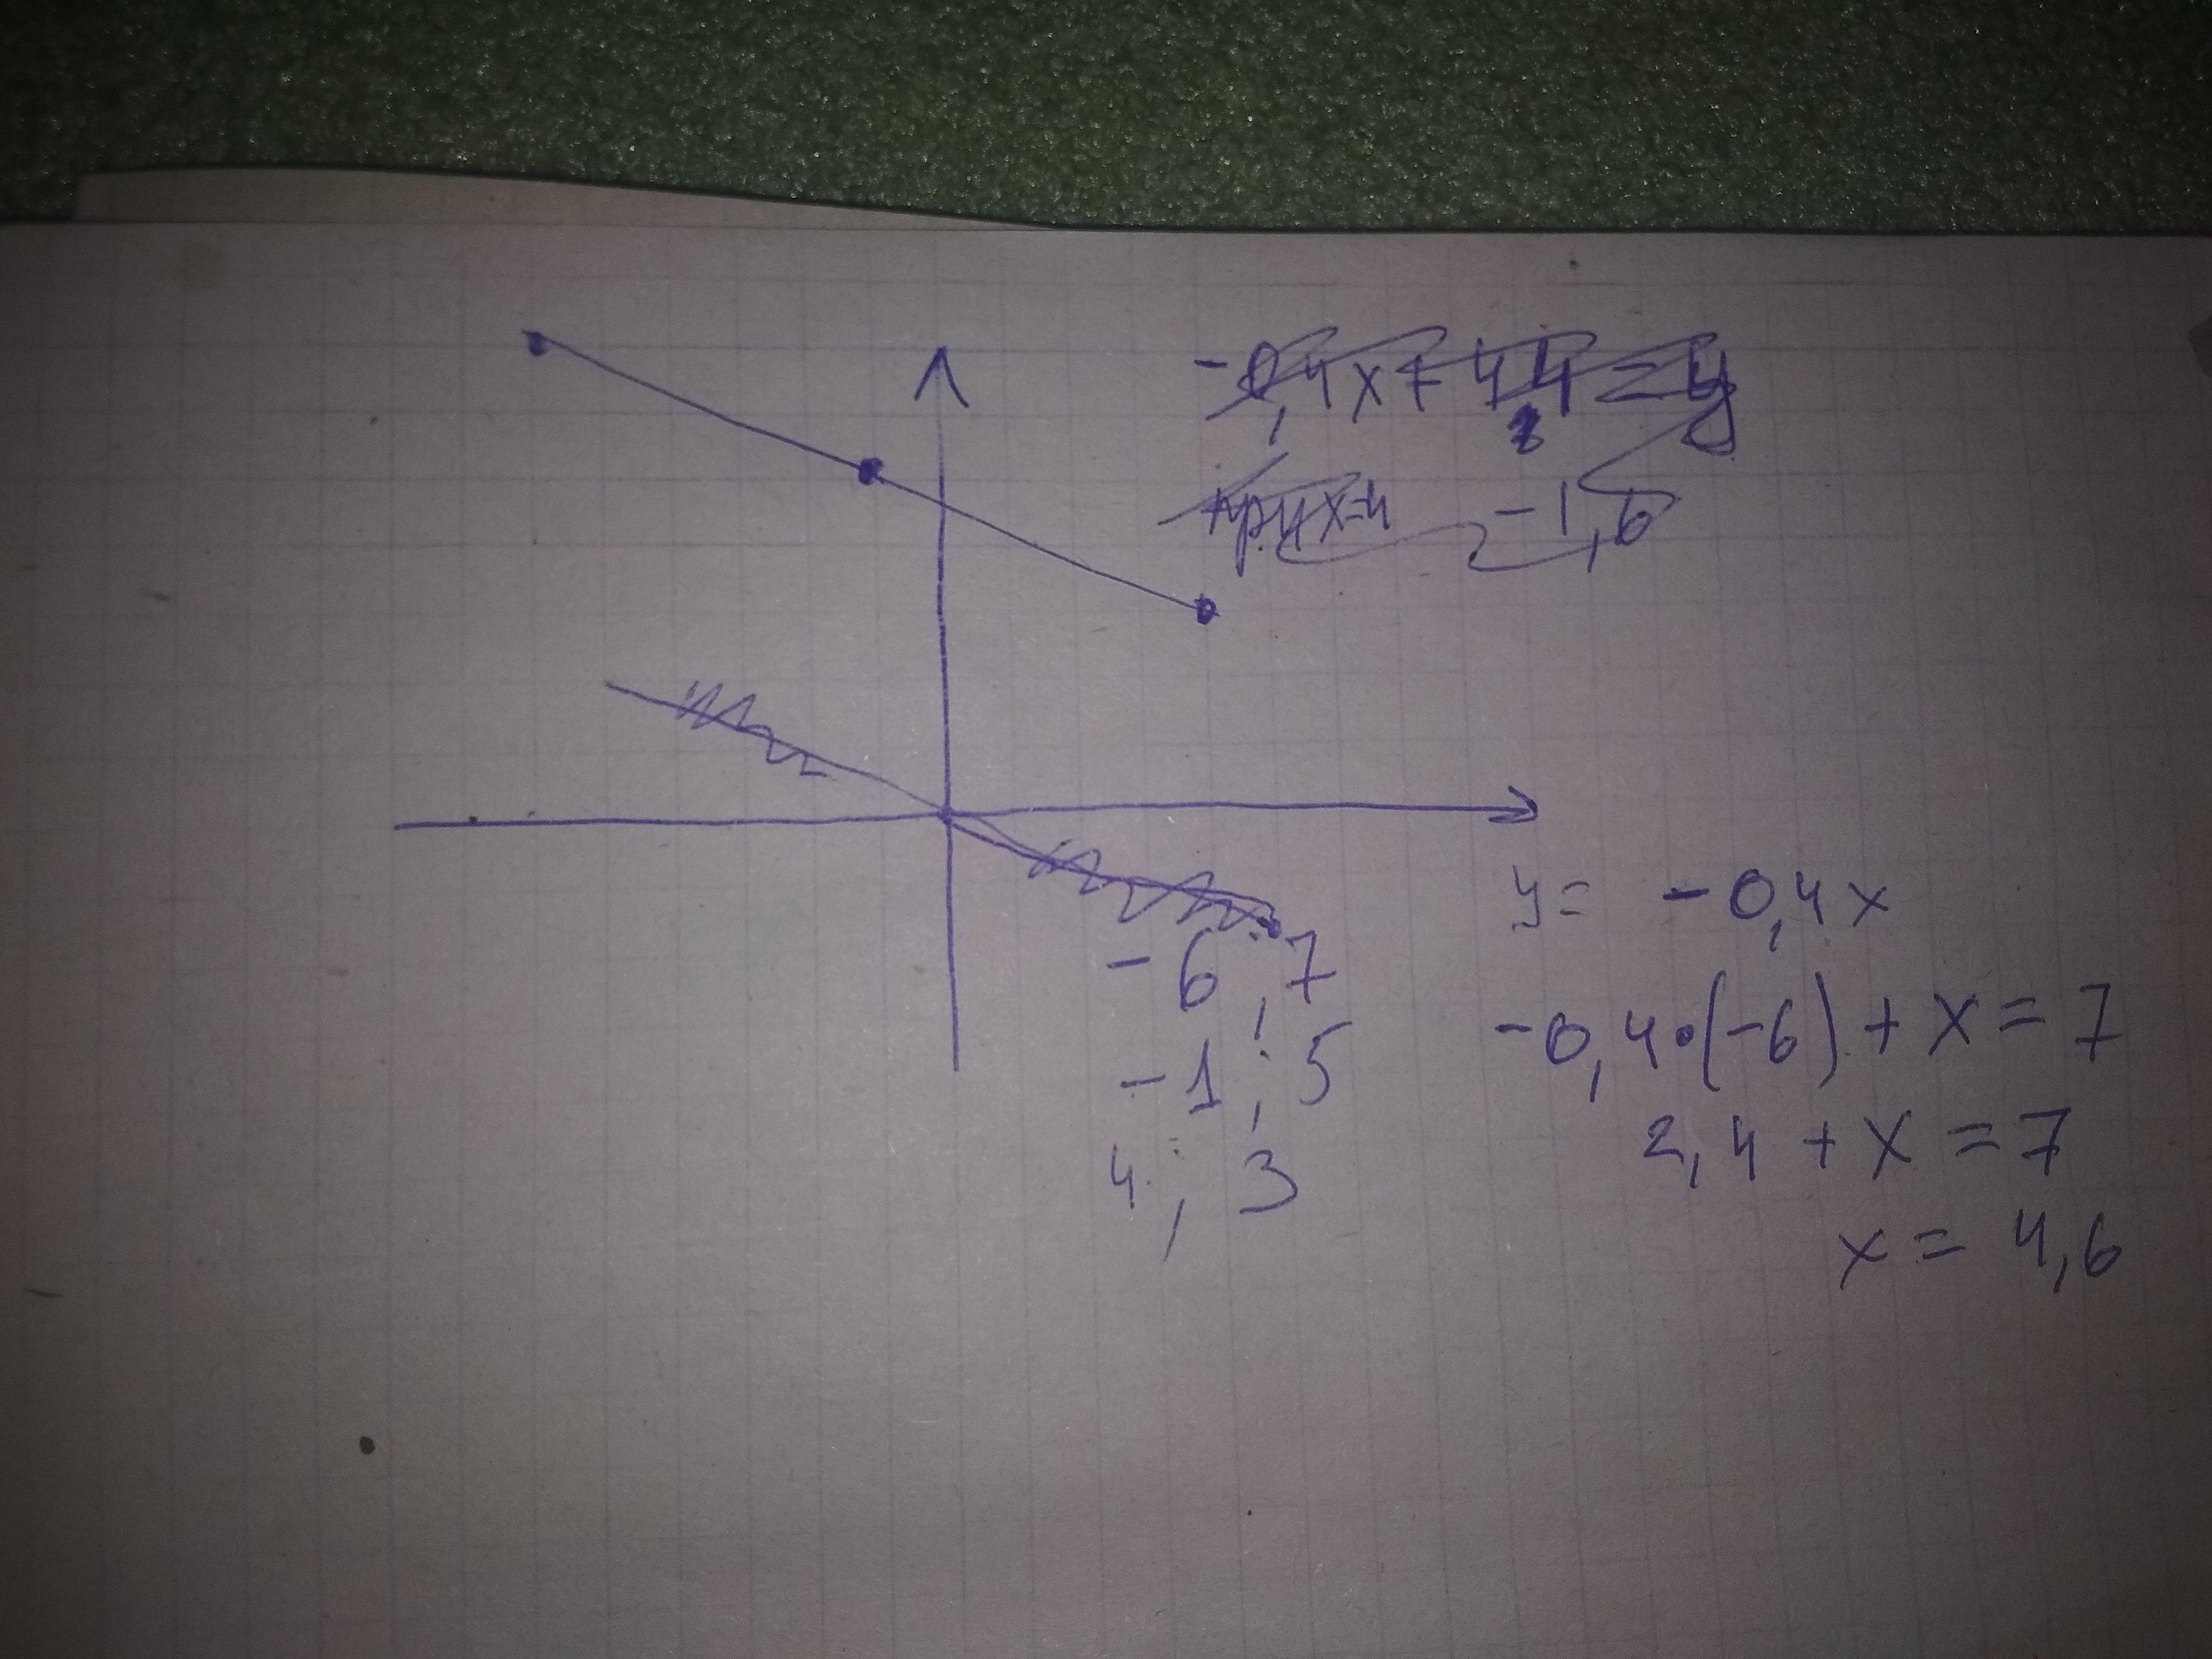 -0,4x+4,4=y
при x=4 -1,6
-6; 7
-1; 5
4; 3
y= -0,4x
-0,4•(-6)+x=7
2,4+x=7
x=4,6